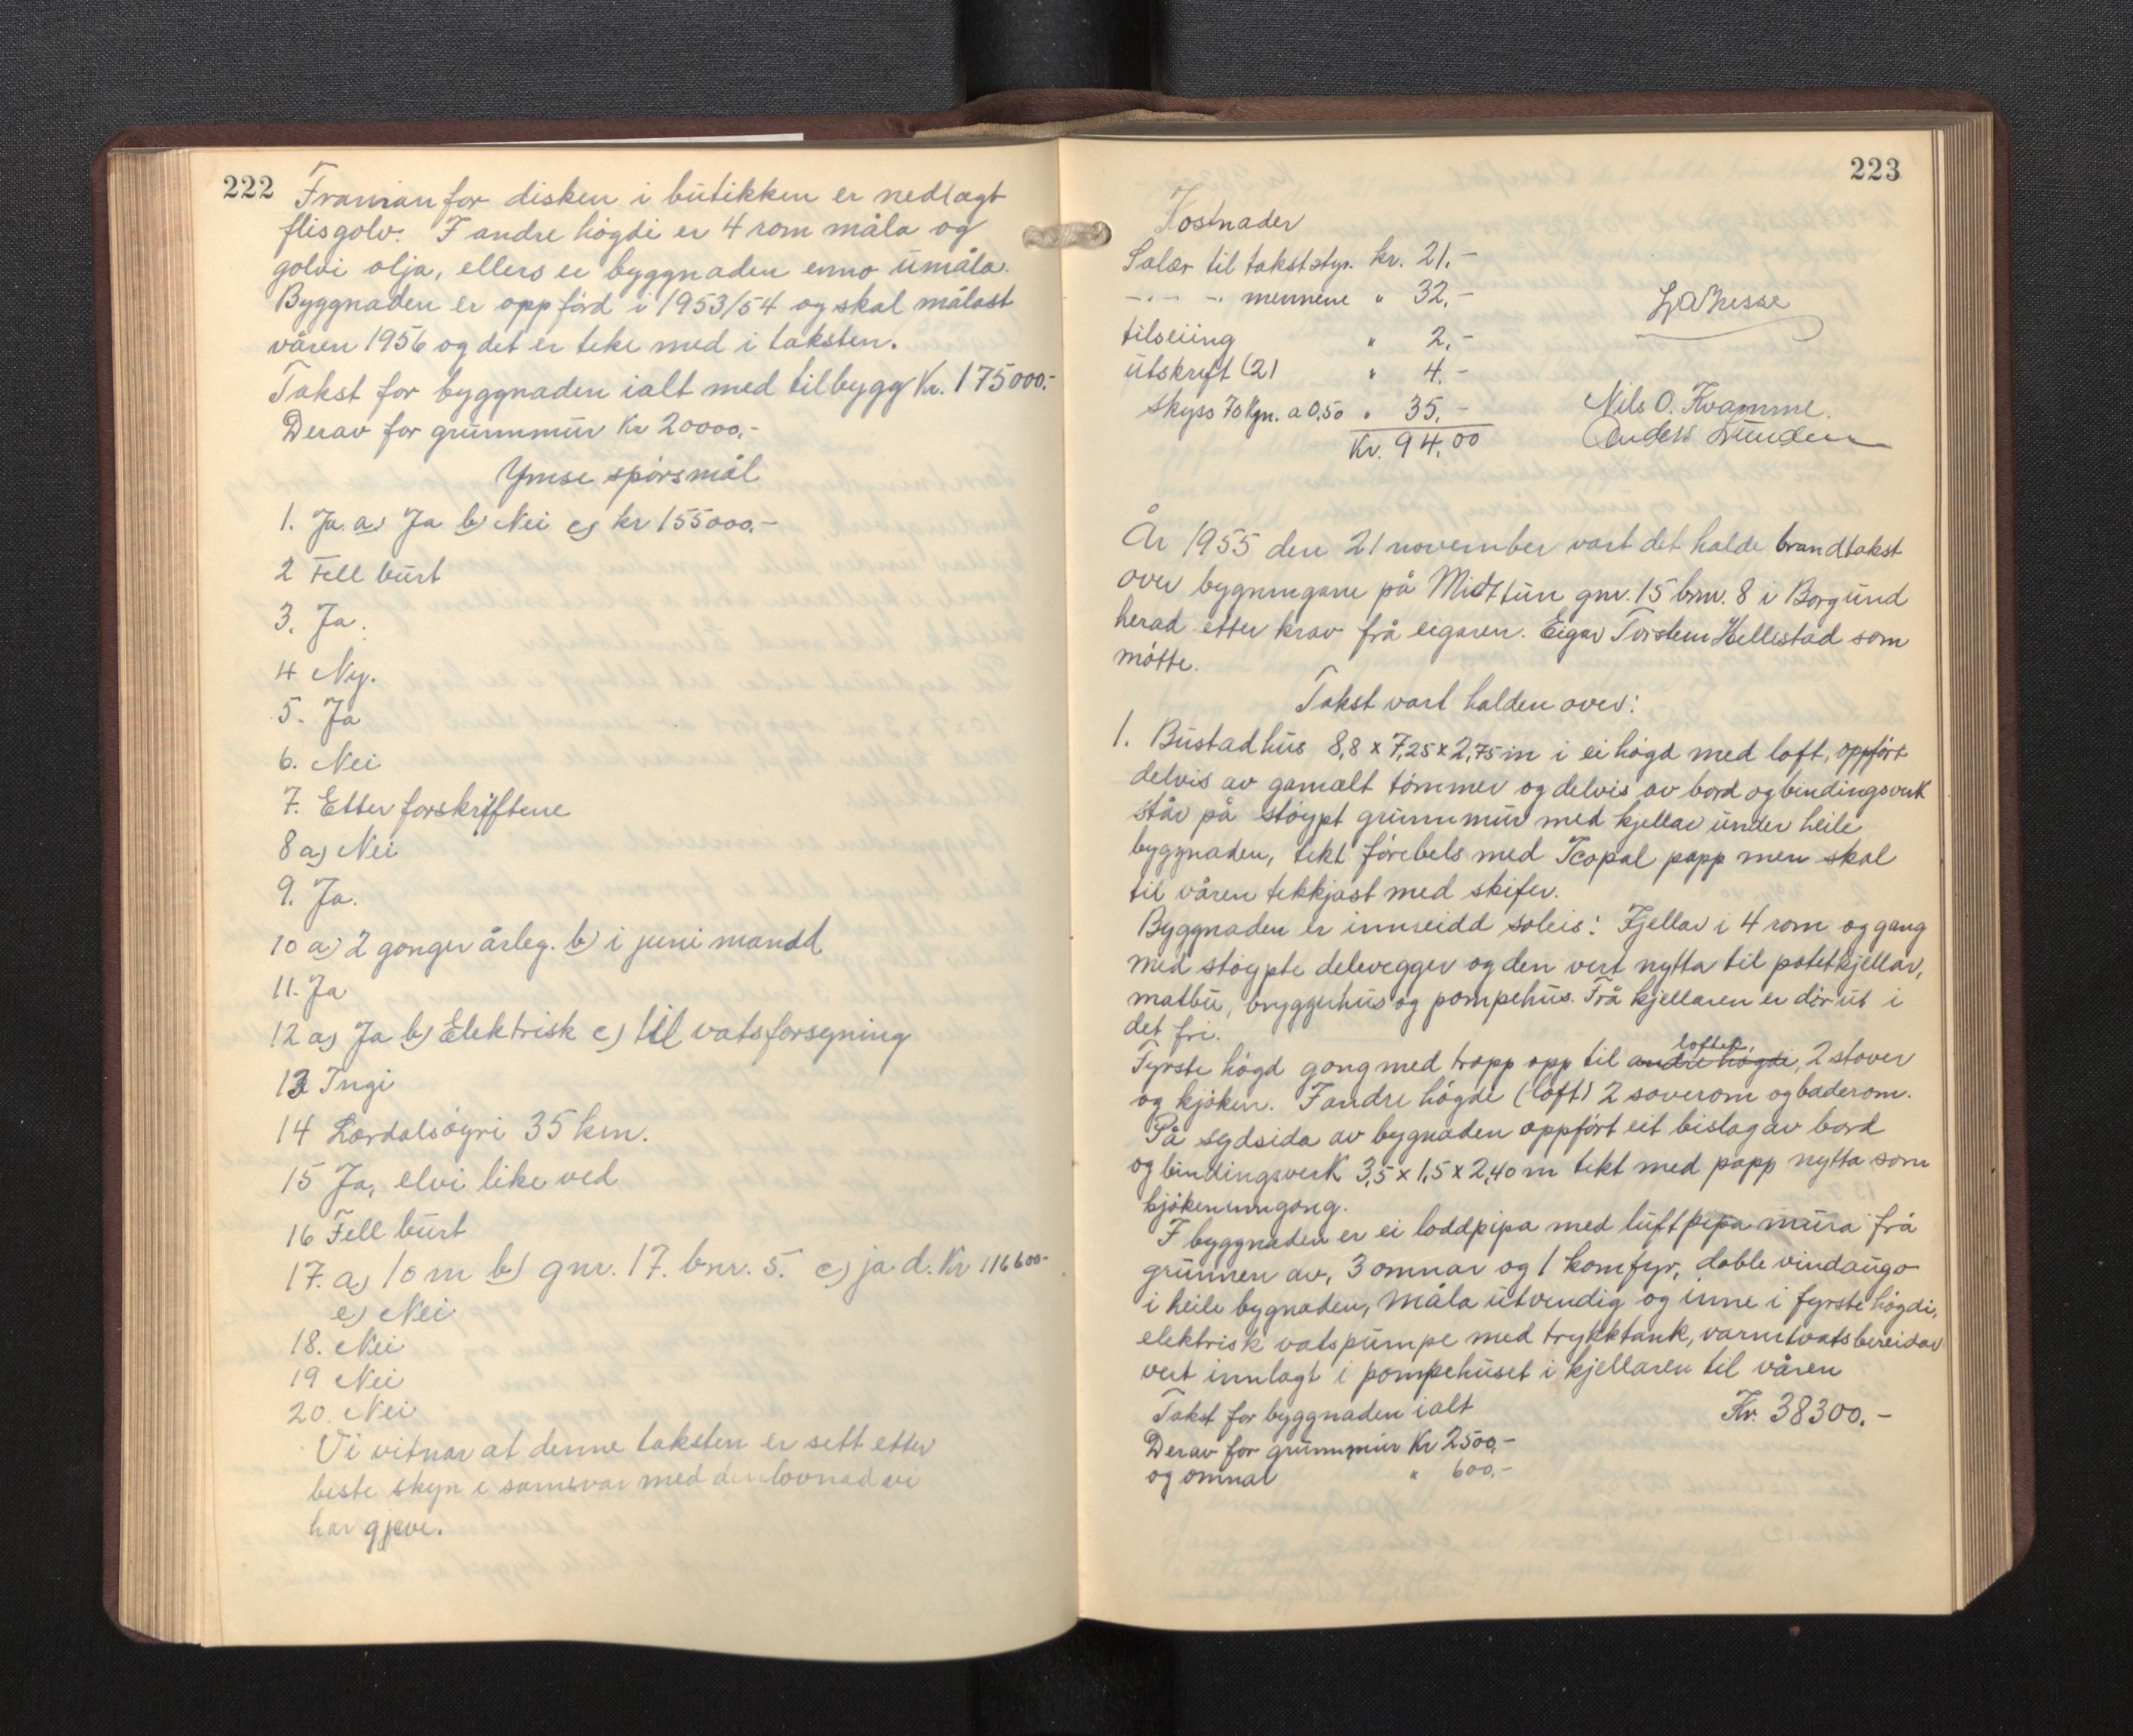 222
Framanfor disken i butikken er nedlagt
flisgolv. I andre högdi er 4 rom måla og
golvi olja, ellers er byggnaden enno umåla.
Byggnaden er oppförd i 1953/54 og skal målast
våren 1956 og det er teke med i taksten.
Takst for byggnaden ialt med tilbygg Kr. 175000.-
Derav for grunnmur Kr 20000,-
Ymse spörsmål
1. Ja. a) Ja b) Nei c) kr 155000.-
2 Fell burt
3. Ja.
4 Ny.
5. Ja
6. Nei
7. Etter forskriftene
8 a) Nei
9. Ja.
10 a) 2 gonger årleg. b) i juni manad
11. Ja
12 a) Ja b) Elektrisk c) til vatsforsyning
13 Ingi
14 Lærdalsöyri 35 km.
15 Ja, elvi like ved
16 Fell burt
17. a) 10 m b) gnr. 17. bnr. 5. c) ja d. Kr 116600-
e) Nei
18. Nei
19 Nei
20. Nei
Vi vitnar at denne taksten er sett etter
beste skyn i samsvar med den lovnad vi
har gjeve.
223
Kostnader
Salær til takststyr. kr. 21.-
-.- -. mennene " 32.-
tilseiing " 2.-
utskrift (2) " 4.-
Skyss 70 kgm. a 0,50 " 35.-
Kr. 94.00
Nils O. Kvamme.
Anders Lunden
År 1955 den 21 november vart det halde brandtakst
over bygningane på Midttun gnr. 15 bnr. 8 i Borgund
herad etter krav frå eigaren. Eigar Torstein Hellestad som
mötte.
Takst vart halden over:
1. Bustadhus 8,8 x 7,25 x 2,75 m i ei högd med loft, oppfört
delvis av gamalt tömmer og delvis av bord og bindingsverk
står på stöypt grunnmur med kjellar under heile
byggnaden, tekt förebels med Icopal papp men skal
til våren tekkjast med skifer.
Byggnaden er innreidd soleis: Kjellar i 4 rom og gang
med stöypte delevegger og den vert nytta til potetkjellar,
matbu, bryggerhus og pompehus. Frå kjellaren er dör ut i
det fri.
loftet,
Fyrste högd gong med tropp opp til andre högdi, 2 stover
og kjöken. I andre högde (loft) 2 soverom og baderom.
På sydsida av bygnaden oppfört eit bislag av bord
og bindingsverk 3,5 x 1,5 x 2,40 m tekt med papp nytta som
kjökeninngong.
I byggnaden er ei loddpipa med luftpipa mura frå
grunnen av, 3 omnar og 1 komfyr, doble vindaugo
i heile bygnaden, måla utvendig og inne i fyrste högdi,
elektrisk vatspumpe med trykktank, varmtvatsbereidar
vert innlagt i pompehuset i kjellaren til våren
Takst for byggnaden ialt Kr. 38300.-
Derav for grunnmur Kr 2500.-
og omnar " 600.-